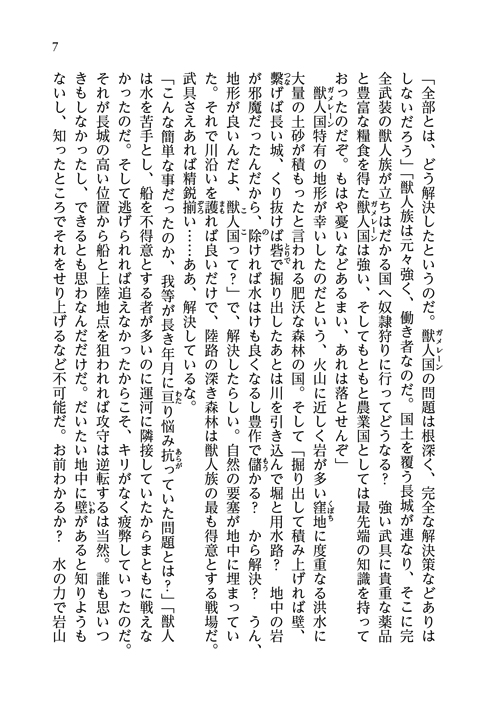 7
「全部とは、どう解決したというのだ。獣人国の問題は根深く、完全な解決策などありは
しないだろう」「獣人族は元々強く、働き者なのだ。国土を覆う長城が連なり、そこに完
全武装の獣人族が立ちはだかる国へ奴隷狩りに行ってどうなる？　強い武具に貴重な薬品
と豊富な糧食を得た獣人国は強い、そしてもともと農業国としては最先端の知識を持って
おったのだぞ。もはや憂いなどあるまい、あれは落とせんぞ」
　獣人国特有の地形が幸いしたのだという、火山に近しく岩が多い窪地に度重なる洪水に
大量の土砂が積もったと言われる肥沃な森林の国。そして「掘り出して積み上げれば壁、
繋げば長い城、くり抜けば砦で掘り出したあとは川を引き込んで堀と用水路？　地中の岩
が邪魔だったんだから、除ければ水はけも良くなるし豊作で儲かる？　から解決？　うん、
地形が良いんだよ、獣人国って？」で、解決したらしい。自然の要塞が地中に埋まってい
た。それで川沿いを護れば良いだけで、陸路の深き森林は獣人族の最も得意とする戦場だ。
武具さえあれば精鋭揃い……ああ、解決しているな。
「こんな簡単な事だったのか、我等が長き年月に亘り悩み抗っていた問題とは？」「獣人
は水を苦手とし、船を不得意とする者が多いのに運河に隣接していたからまともに戦えな
かったのだ。そして逃げられれば追えなかったからこそ、キリがなく疲弊していったのだ。
それが長城の高い位置から船と上陸地点を狙われれば攻守は逆転するは当然。誰も思いつ
きもしなかったし、できるとも思わなんだだけだ。だいたい地中に壁があると知りようも
ないし、知ったところでそれをせり上げるなど不可能だ。お前わかるか？　水の力で岩山